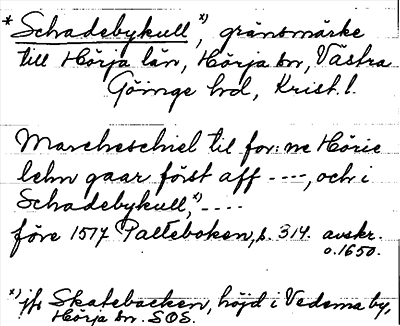 * Schadebykull x), gränsmärke
till Hörja län, Hörja sn, Västra
Göinge hd, Krist. l.
Marcheschiel til for:ne Hörie
lehn gaar först aff ----, och i
Schadebykull, x) ----
före 1517 Palteboken, s. 314. avskr.
o. 1650.
x) jfr Skatebacken, höjd i Vedema by,
Hörja sn. SOS.